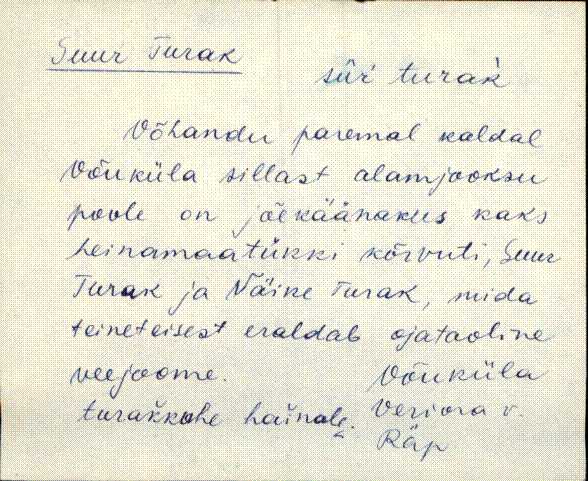 Suur Turak
sūŕ turak
Võhandu paremal kaldal
Võuküla sillast alamjooksu
poole on jõekäänakus kaks
heinamaatükki kõrvuti, Suur
Turak ja Väike Turak, mida
teineteisest eraldab ojataoline
veejoome.
Võuküla
turakkohe hainale.
Veriora v.
Räp